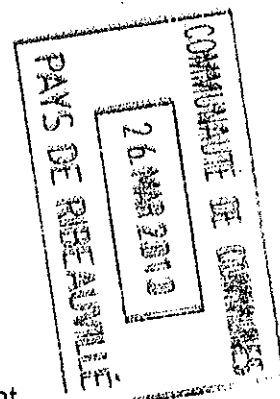 COMMUNAUTÉ DE COMMUNES
26 MAR 2010
PAYS DE RIBEAUVILLÉ
nt